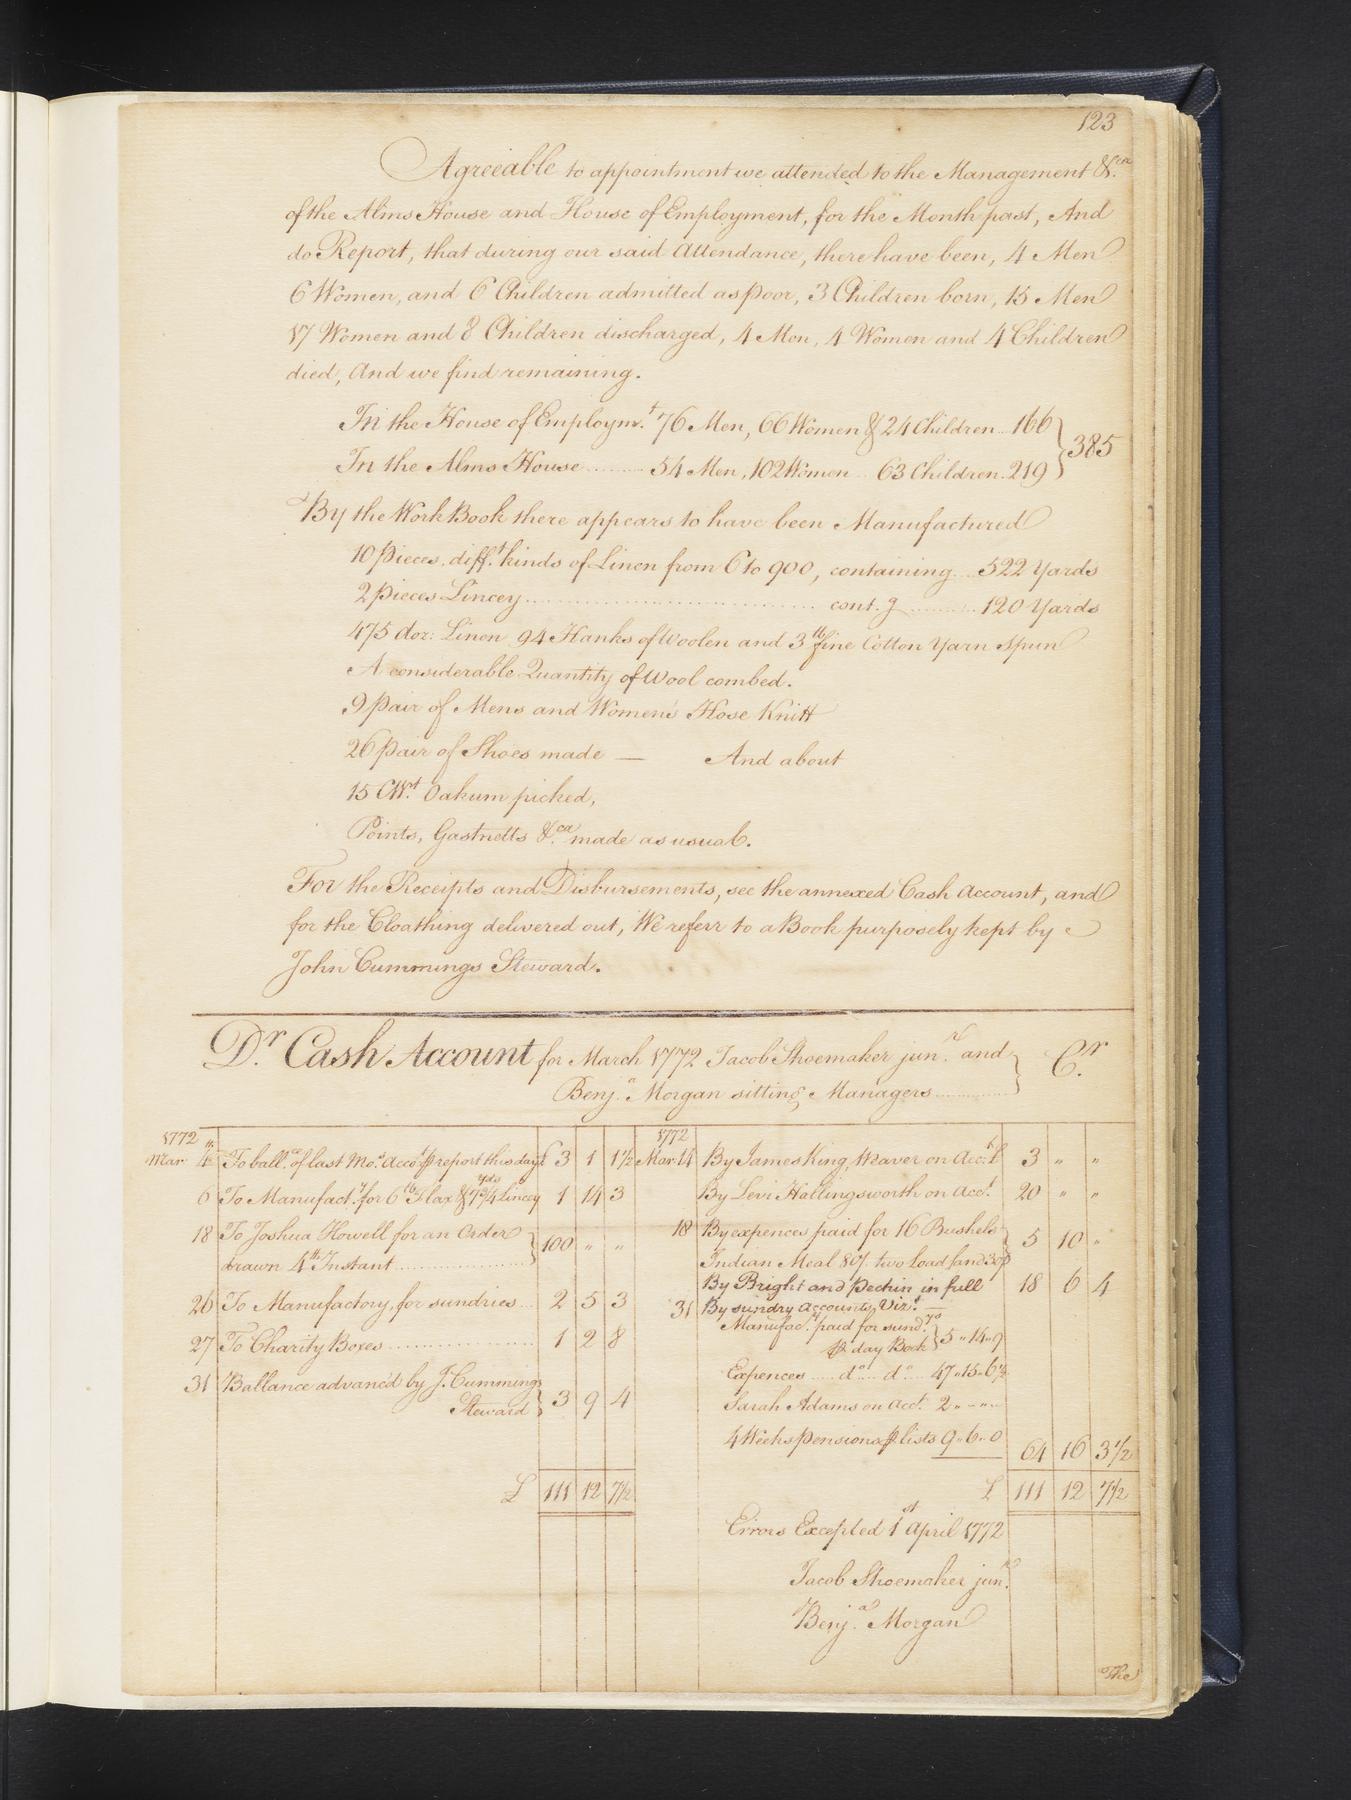 123
Agreeable to appointment we attended to the Management &ca.
of the Alms House and House of Employment, for the Month past, And
do Report, that during our said Attendance, there have been, 4 Men
6 Women, and 6 Children admitted as poor, 3 Children born, 15 Men
17 Women and 8 Children discharged, 4 Men, 4 Women and 4 Children
died, And we find remaining.
In the House of Employmt. 76 Men, 66 Women & 24 Children .. 166
385
In the Alms House .......... 54 Men, 102 Women ... 63 Children. 219
By the Work Book there appears to have been Manufactured
10 pieces, difft. kinds of Linen from 6 to 900, containing .... 522 Yards
2 pieces Lincey .............................. cont.g .......... 120 Yards
475 doz: Linen 94 Hanks of Woolen and 3 lb fine Cotton Yarn Spun
A considerable Quantity of Wool combed.
9 pair of Mens and Women's Hose Knitt
26 pair of Shoes made — And about
15 CWt. Oakum picked,
Points, Gasknetts &.ca made as usual.
For the Receipts and Disbursements, see the annexed Cash Account, and
for the Cloathing delivered out, We referr to a Book purposely kept by
John Cummings Steward.
Dr. Cash Account for March 1772 Jacob Shoemaker junr. and Cr.
Benj.n Morgan sitting Managers ............
1772 1772
Mar 4 To ball.ce of last Mo.s Acco.t ⅌ report this day £ 3 1 1½ Mar. 14 By James King, Weaver on Acct. £ 3 " "
6 To Manufact.y for 6 lb Flax & 73/4 yds Lincey 1 14 3 By Levi Hallingsworth on Acct. 20 " "
18 To Joshua Howell for an Order 100 " " 18 By expences paid for 16 Bushels 5 10 "
drawn 4th Instant .................... Indian Meal 80/. two Load sand 30/
By Bright and Pechin in full 18 6 4
26 To Manufactory, for sundries ... 2 5 3 31 By sundry Accounts, Vizt. —
Manufac.y paid for sund.ys
⅌ day Book 5 " 14 " 9
27 To Charity Boxes .................. 1 2 8
Expences ..... do .... do .... 47 " 15 " 6½
31 Ballance advanc'd by J. Cummings 3 9 4
Steward
Sarah Adams on Acct. 2 " - " -
4 Weeks pensions ⅌ lists 9 " 6 " 0 64 16 3½
£ 111 12 7½ £ 111 12 7½
Errors Excepted 1st April 1772
Jacob Shoemaker junr.
Benj.n Morgan
The